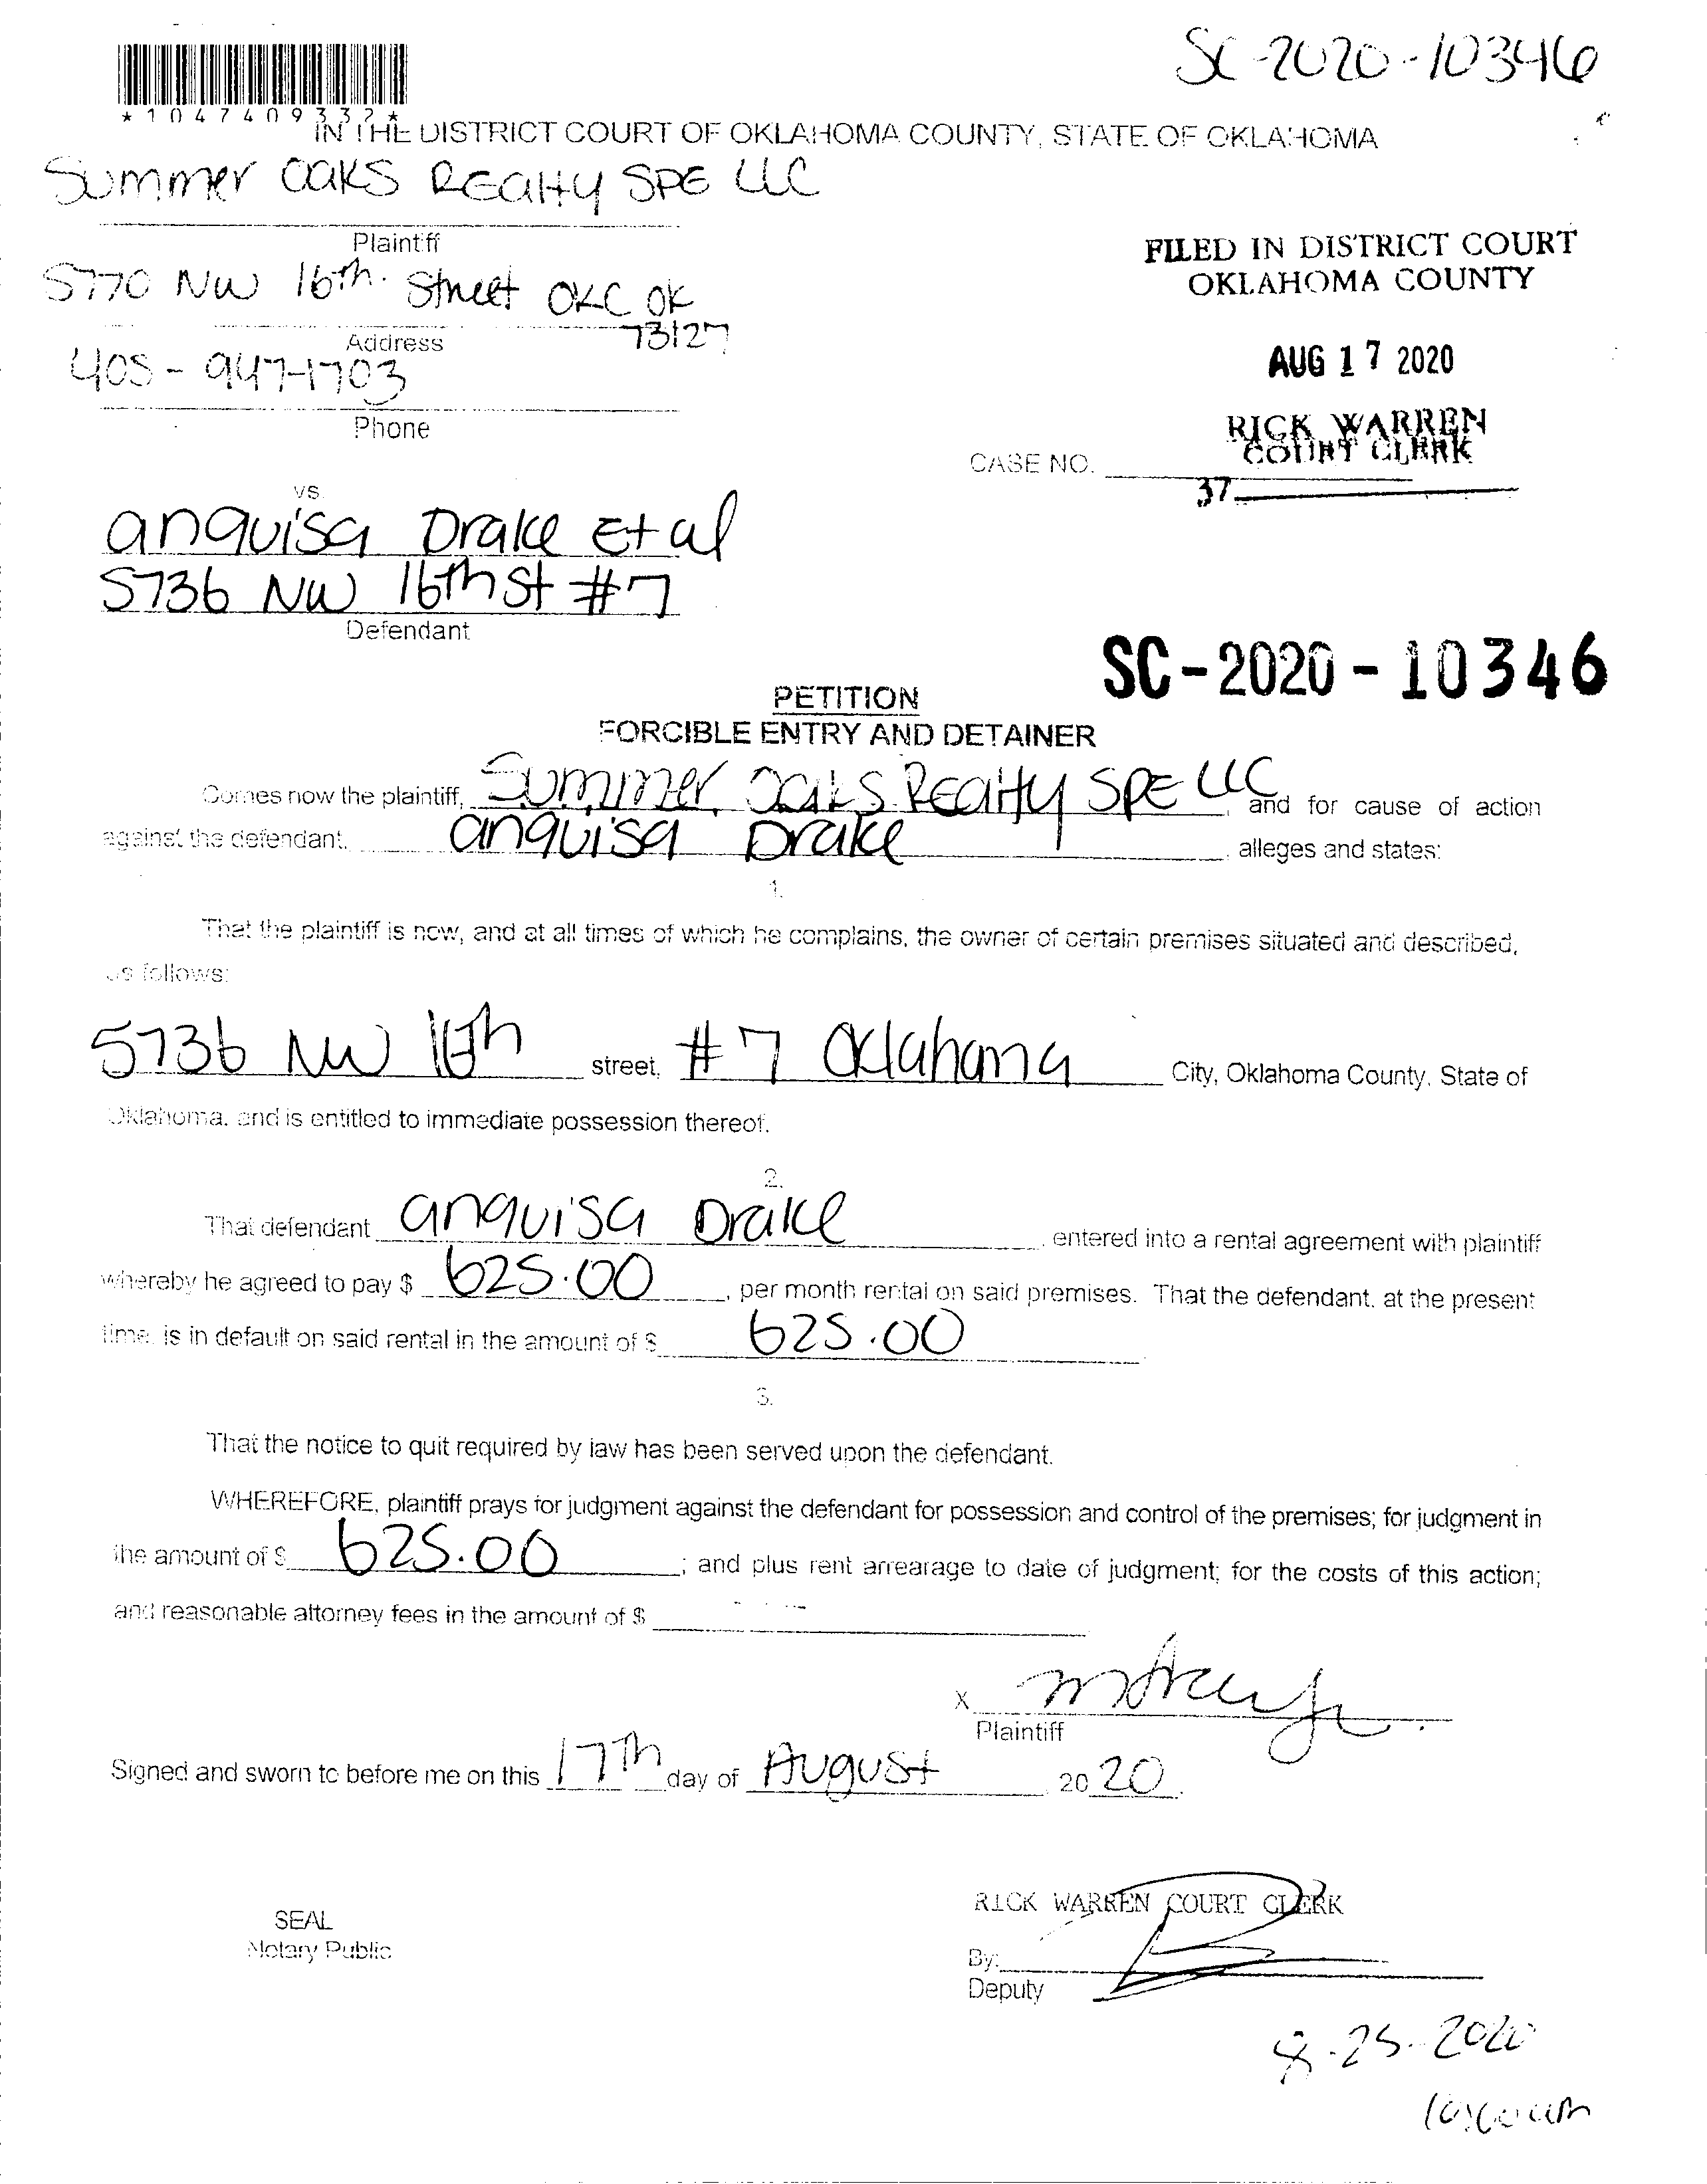 SC-2020-10346
*1047409332*
IN THE DISTRICT COURT OF OKLAHOMA COUNTY, STATE OF OKLAHOMA
Summer Oaks REalty SPE LLC
Plaintiff
5770 NW 16th. Street OKC OK
73127
Address
405-947-1703
Phone
FILED IN DISTRICT COURT
OKLAHOMA COUNTY
AUG 17 2020
RICK WARREN
COURT CLERK
CASE NO.
37
vs.
anquisa Drake Et al
5736 NW 16th St #7
Defendant
SC-2020-10346
PETITION
FORCIBLE ENTRY AND DETAINER
Comes now the plaintiff, Summer Oaks REalty SPE LLC, and for cause of action
against the defendant, anquisa Drake, alleges and states:
1.
That the plaintiff is now, and at all times of which he complains, the owner of certain premises situated and described,
as follows:
5736 NW 16th street, #7 Oklahoma City, Oklahoma County, State of
Oklahoma, and is entitled to immediate possession thereof.
2.
That defendant anquisa Drake, entered into a rental agreement with plaintiff
whereby he agreed to pay $ 625.00, per month rental on said premises. That the defendant, at the present
time, is in default on said rental in the amount of $ 625.00
3.
That the notice to quit required by law has been served upon the defendant.
WHEREFORE, plaintiff prays for judgment against the defendant for possession and control of the premises; for judgment in
the amount of $ 625.00; and plus rent arrearage to date of judgment; for the costs of this action;
and reasonable attorney fees in the amount of $
X
Plaintiff
Signed and sworn to before me on this 17th day of August, 2020.
SEAL
Notary Public
RICK WARREN COURT CLERK
By:
Deputy
8-25-2020
10:00am